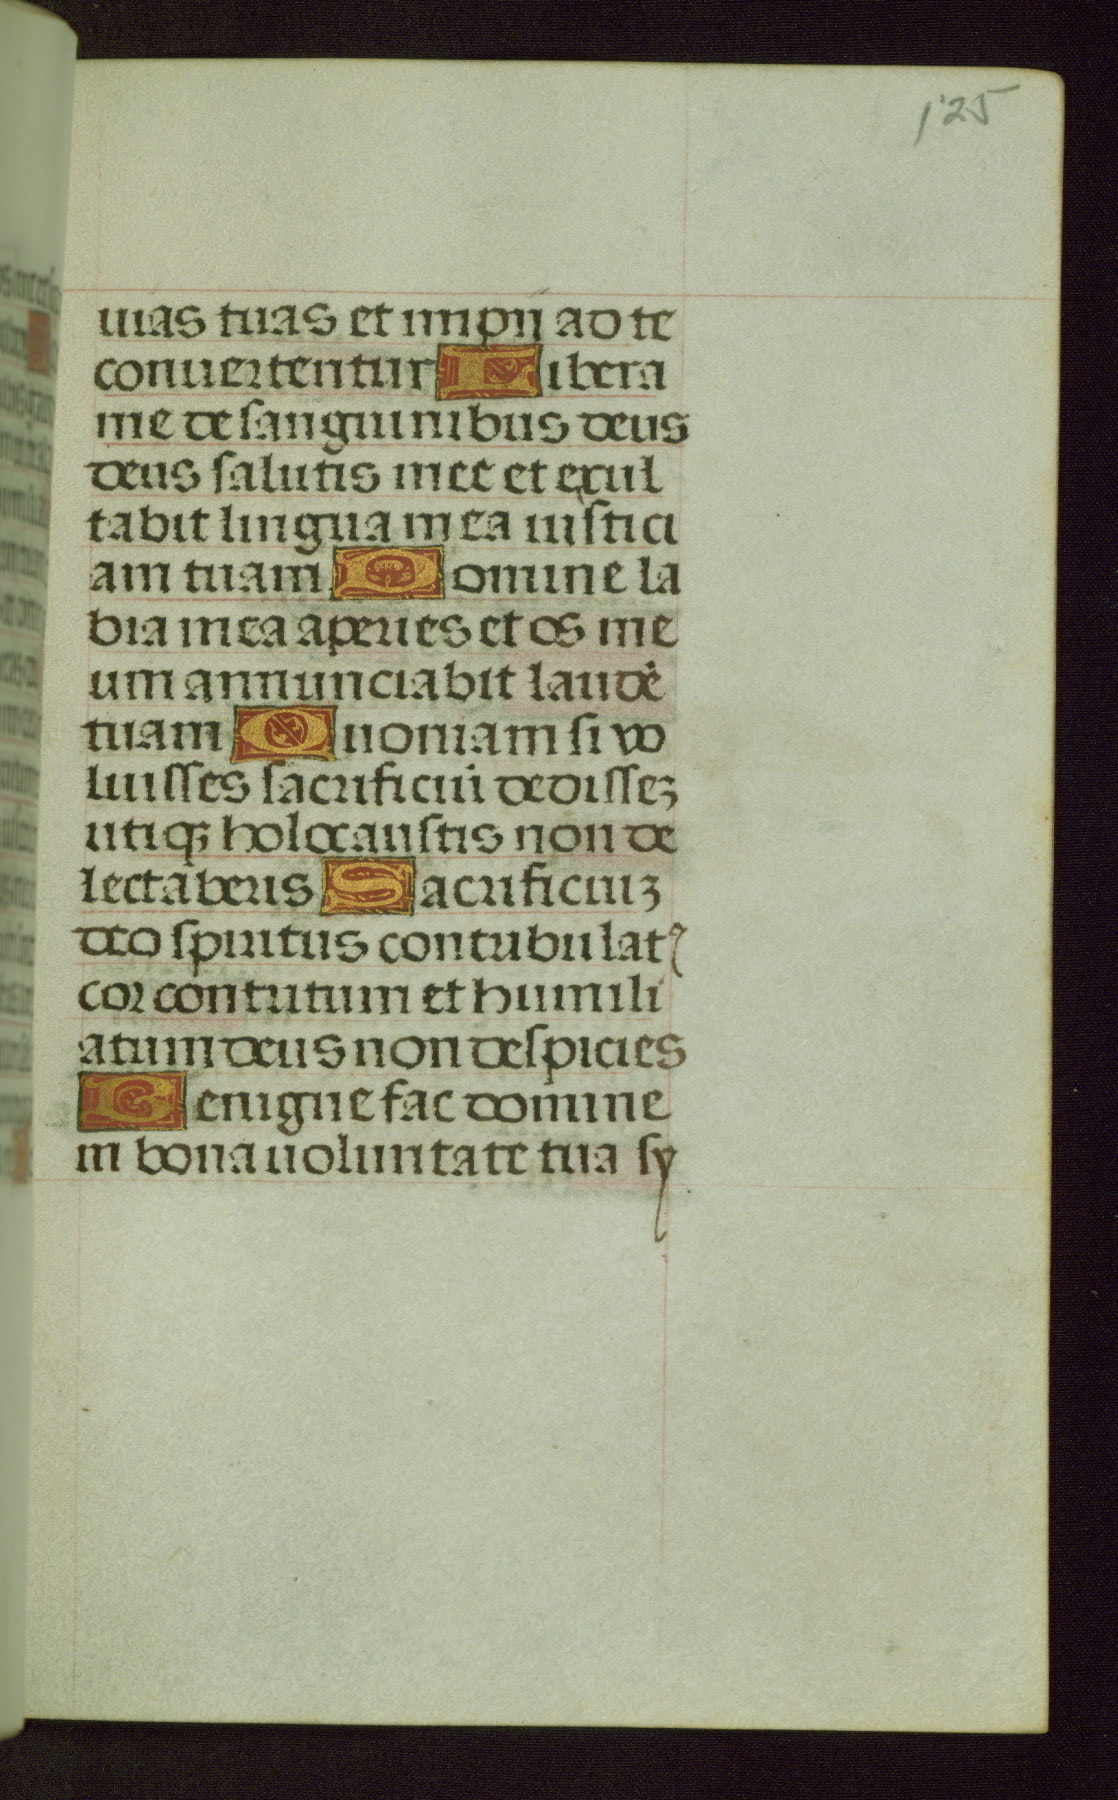 125
uias tuas et impii ad te
conuertentur Libera
me de sanguinibus deus
deus salutis mee et exul
tabit lingua mea iustici
am tuam Domine la
bia mea aperies et os me
um annunciabit laudē
tuam Quoniam si vo
luisses sacrificiū dedissez
utiqꝫ holocaustis non de
lectaberis Sacrificiuꝫ
deo spiritus contribulatꝰ
cor contritum et humili
atum deus non despicies
Benigne fac domine
in bona uoluntate tua sy